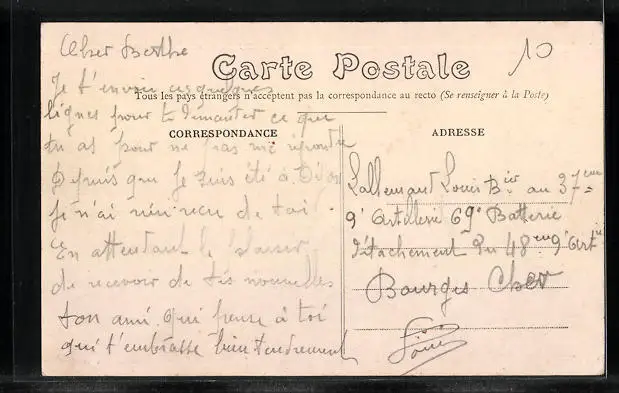 Cher Berthe
10
Carte Postale
Tous les pays étrangers n'acceptent pas la correspondance au recto (Se renseigner à la Poste)
CORRESPONDANCE
Je t'envoie ces quelques
lignes pour te demander ce que
tu as pour ne pas me répondre
Depuis que Je suis été à Dijon
Je n'ai rien recu de toi.
En attendant le plaisir
de recevoir de tes nouvelles
ton ami qui pense à toi
qui t'embrasse bien tendrement
ADRESSE
Lallemand Louis Bier au 37eme
d'Artillerie 69e Batterie
Détachement du 48eme d'Artie
Bourges Cher
Louis